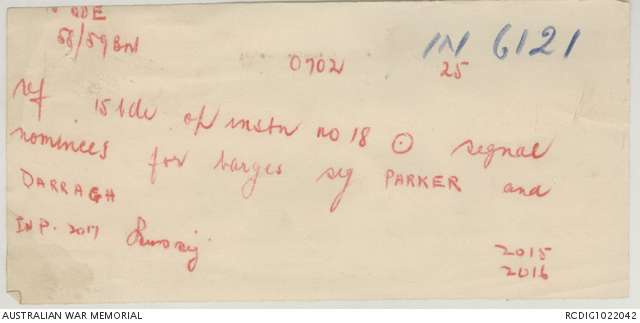 BDE
58/59 BN
IN 6121
0702 25
ref 15 bde op instn no 18 ⊙ signal
nominees for barges sig PARKER and
DARRAGH
INP. 2017
2015
2016
AUSTRALIAN WAR MEMORIAL
RCDIG1022042